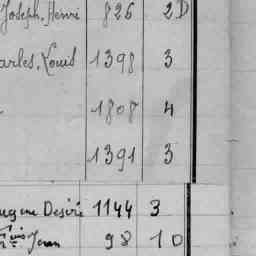 Joseph, Henri 826 2D
arles, Louis 1398 3
1808 4
1391 3
ugene Desiré 1144 3
Jean 98 10